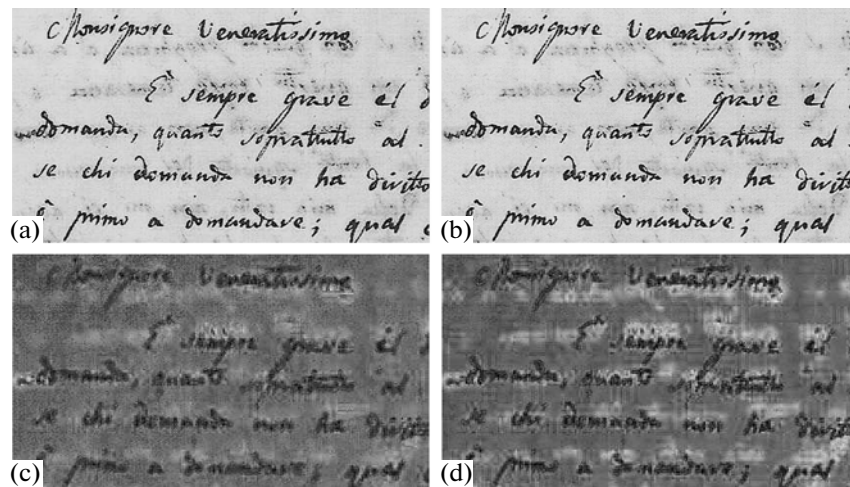 Monsignore Veneratissimo
È sempre grave il
domanda, quanto sopratutto al
se chi domanda non ha diritto
è primo a domandare; qual
(a)
Monsignore Veneratissimo
È sempre grave il
domanda, quanto sopratutto al
se chi domanda non ha diritto
è primo a domandare; qual
(b)
Monsignore Veneratissimo
È sempre grave il
domanda, quanto sopratutto al
se chi domanda non ha diritto
è primo a domandare; qual
(c)
Monsignore Veneratissimo
È sempre grave il
domanda, quanto sopratutto al
se chi domanda non ha diritto
è primo a domandare; qual
(d)